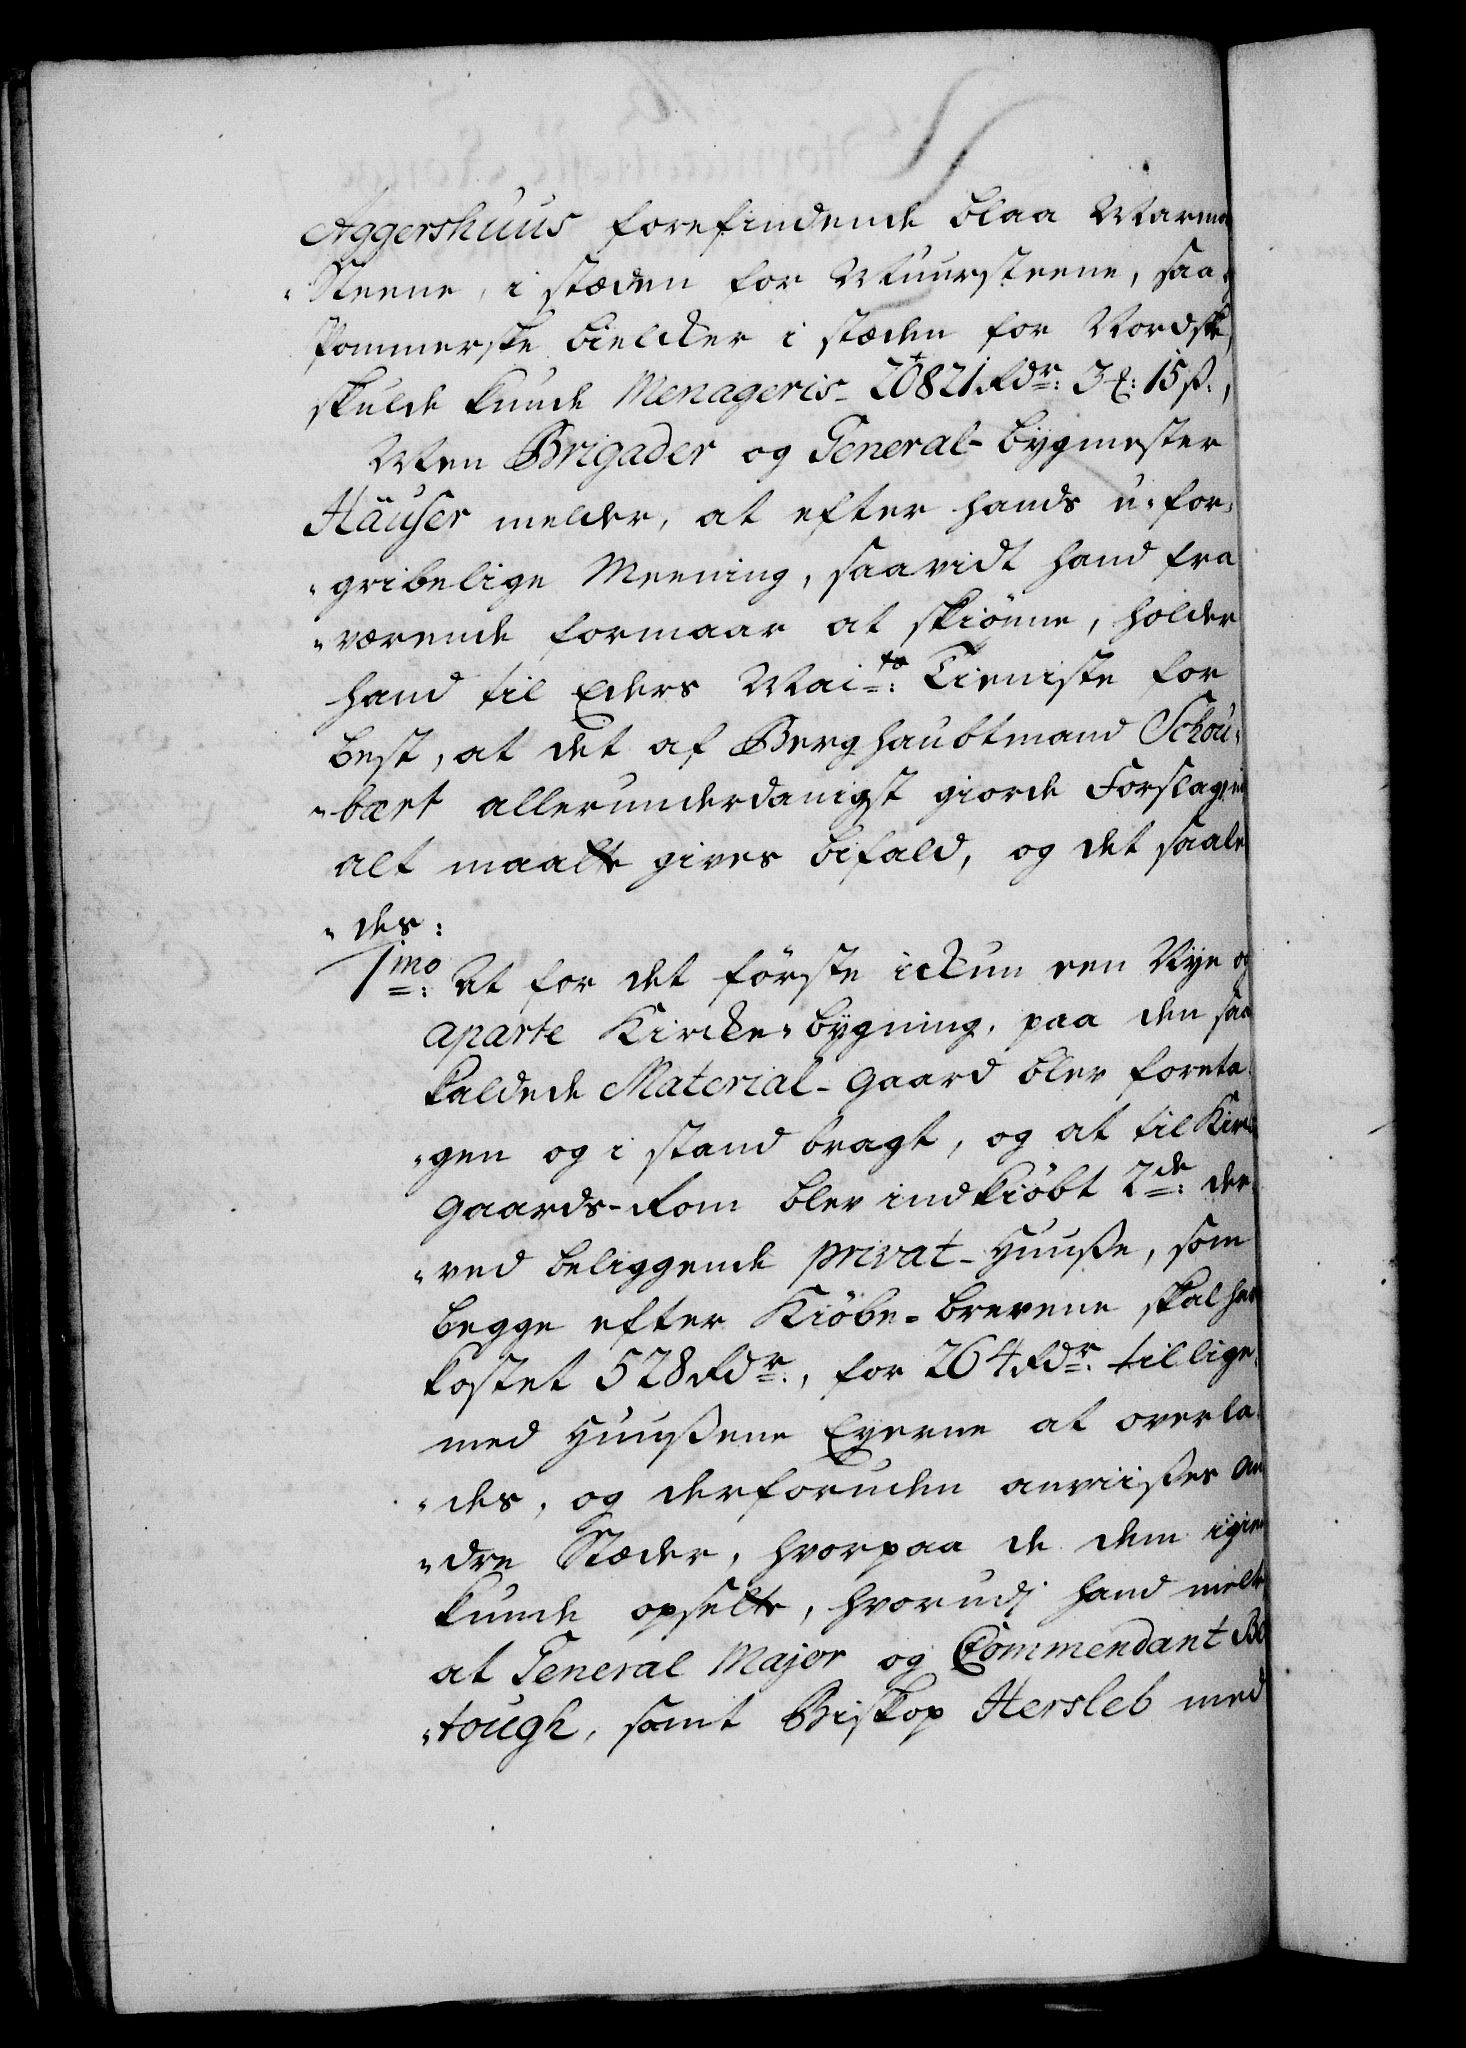 Aggershuus forefindende blaa Marmor
"Steene, i stæden for Muursteene, saa
Pommerske bielcker i stæden for Nordske,
skulde kunde Menageris- 20821 Rdr: 3 ℔: 15 ß.,
Men Brigader og General-bygmester
Häuser melder, at efter hands u-for,
"gribelige Meening, saavidt hand fra
"værende formaar at skiönne, holder
hand til Eders Maits: Tieniste for
best, at det af Berghaubtmand Schou,
"bært allerunderdanigst giorde Forslag,
alt maatte gives bifald, og det saale
"des:
1mo: At for det förste ickun een Nye og
aparte Kircke-bygning, paa den saa
kaldede Material-gaard blev foreta,
"gen og i stand bragt, og at til Kirke
gaards-Rom blev indkiöbt 2de: der,
"ved beliggende privat-Huuße, som
begge efter Kiöbe-brevene skal have
kostet 528 Rdr:, for 264 Rdr: tillige
med Huußene Eyerne at overla,
"des, og derforuden anviißes an
"dre Stæder, hvorpaa de dem igien
kunde opsette, hvorudj hand melder
at General Major og Commendant Bo
"tough, samt Biskop Hersleb med